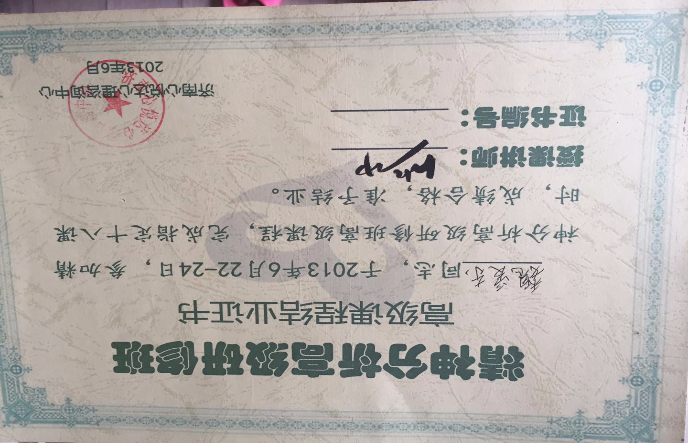 精神分析高级研修班
高级课程结业证书
同志，于2013年6月22-24日，参加精
神分析高级研修班高级课程，完成指定十八课
时，成绩合格，准予结业。
授课讲师：
证书编号：
济南心悦达心理咨询中心
2013年6月